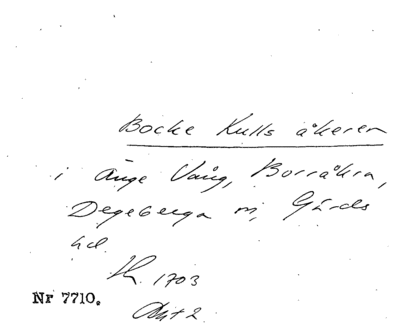 Bocke Kulls åkeren
i Änge Vång, Borråkra,
Degeberga sn, Gärds
hd.
1703
Nr 7710.
Akt 2